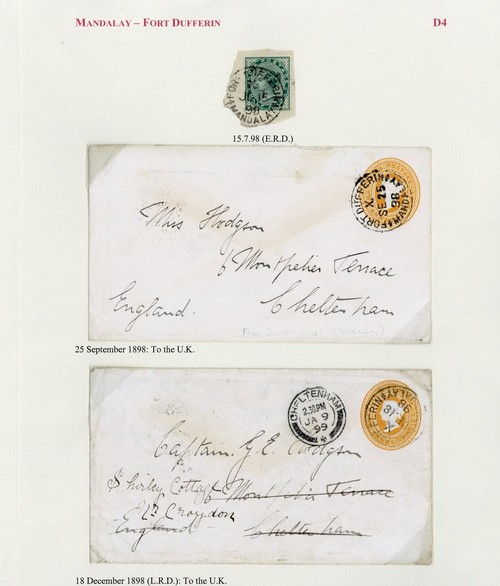 MANDALAY – FORT DUFFERIN
D4
FORT DUFFERIN
JY 15
98
MANDALAY
15.7.98 (E.R.D.)
FORT DUFFERIN
X
SE 25
98
MANDALAY
Miss Hodgson
6 Montpelier Terrace
Cheltenham
England.
25 September 1898: To the U.K.
CHELTENHAM
2.30PM
JA 9
99
DUFFERIN
DALAY
18
98
X
Captain G.E. Hodgson
Shirley Cottage
6 Montpelier Terrace
Croydon
England
Cheltenham
18 December 1898 (L.R.D.): To the U.K.